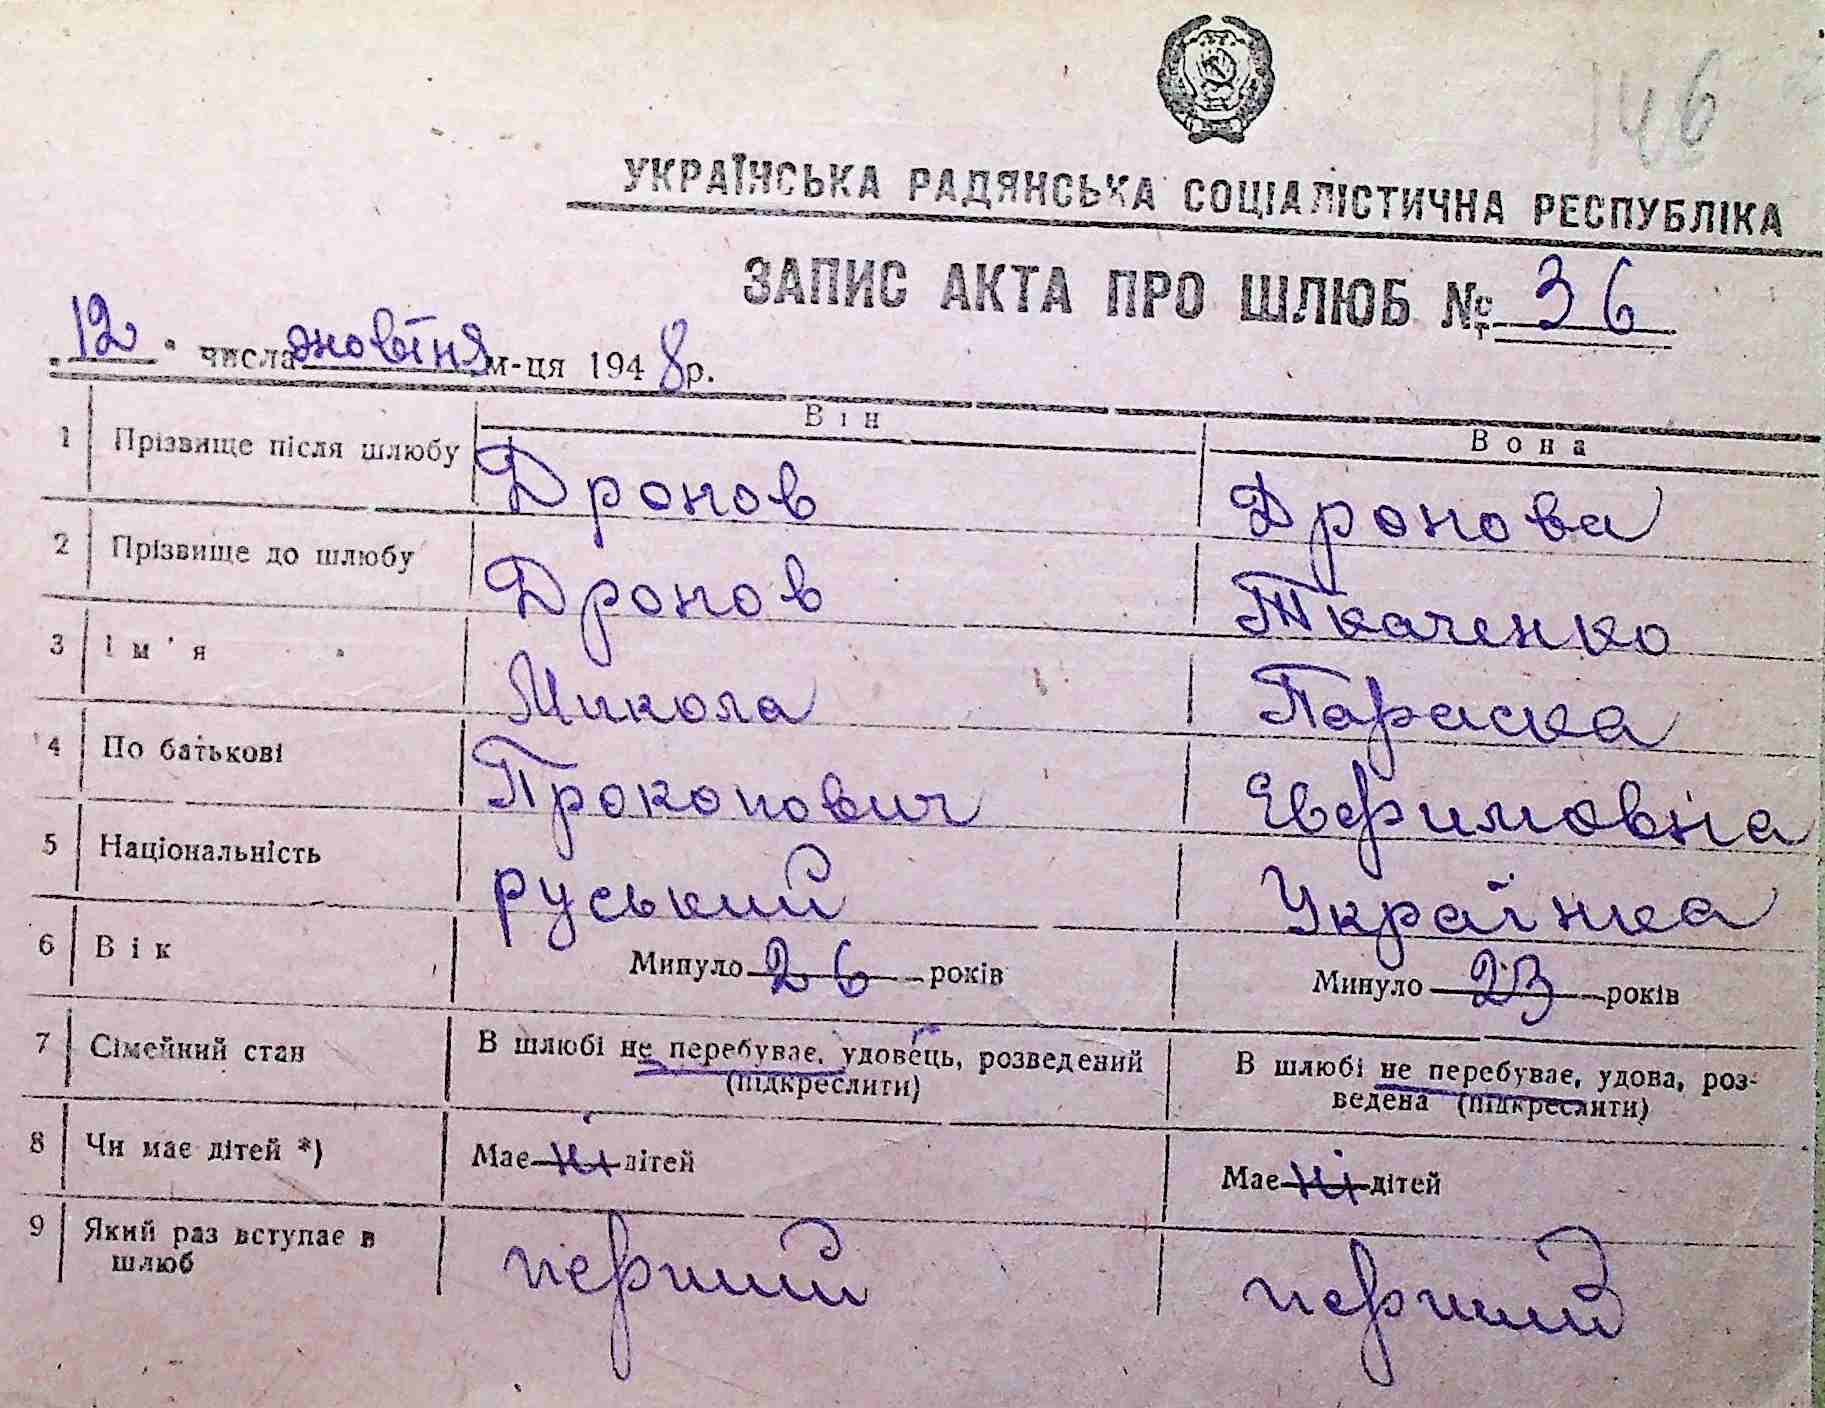 146
УКРАЇНСЬКА РАДЯНСЬКА СОЦІАЛІСТИЧНА РЕСПУБЛІКА
ЗАПИС АКТА ПРО ШЛЮБ № 36
„12" числа жовтня м-ця 1948 р.
Він Вона
1 Прізвище після шлюбу Дронов Дронова
2 Прізвище до шлюбу Дронов Ткаченко
3 Ім'я Микола Параска
4 По батькові Прокопович Евфимовна
5 Національність руський Українка
6 Вік Минуло 26 років Минуло 23 років
7 Сімейний стан В шлюбі не перебуває, удовець, розведений В шлюбі не перебуває, удова, роз-
(підкреслити) ведена (підкреслити)
8 Чи має дітей *) Має ні дітей Має ні дітей
9 Який раз вступає в перший перший
шлюб